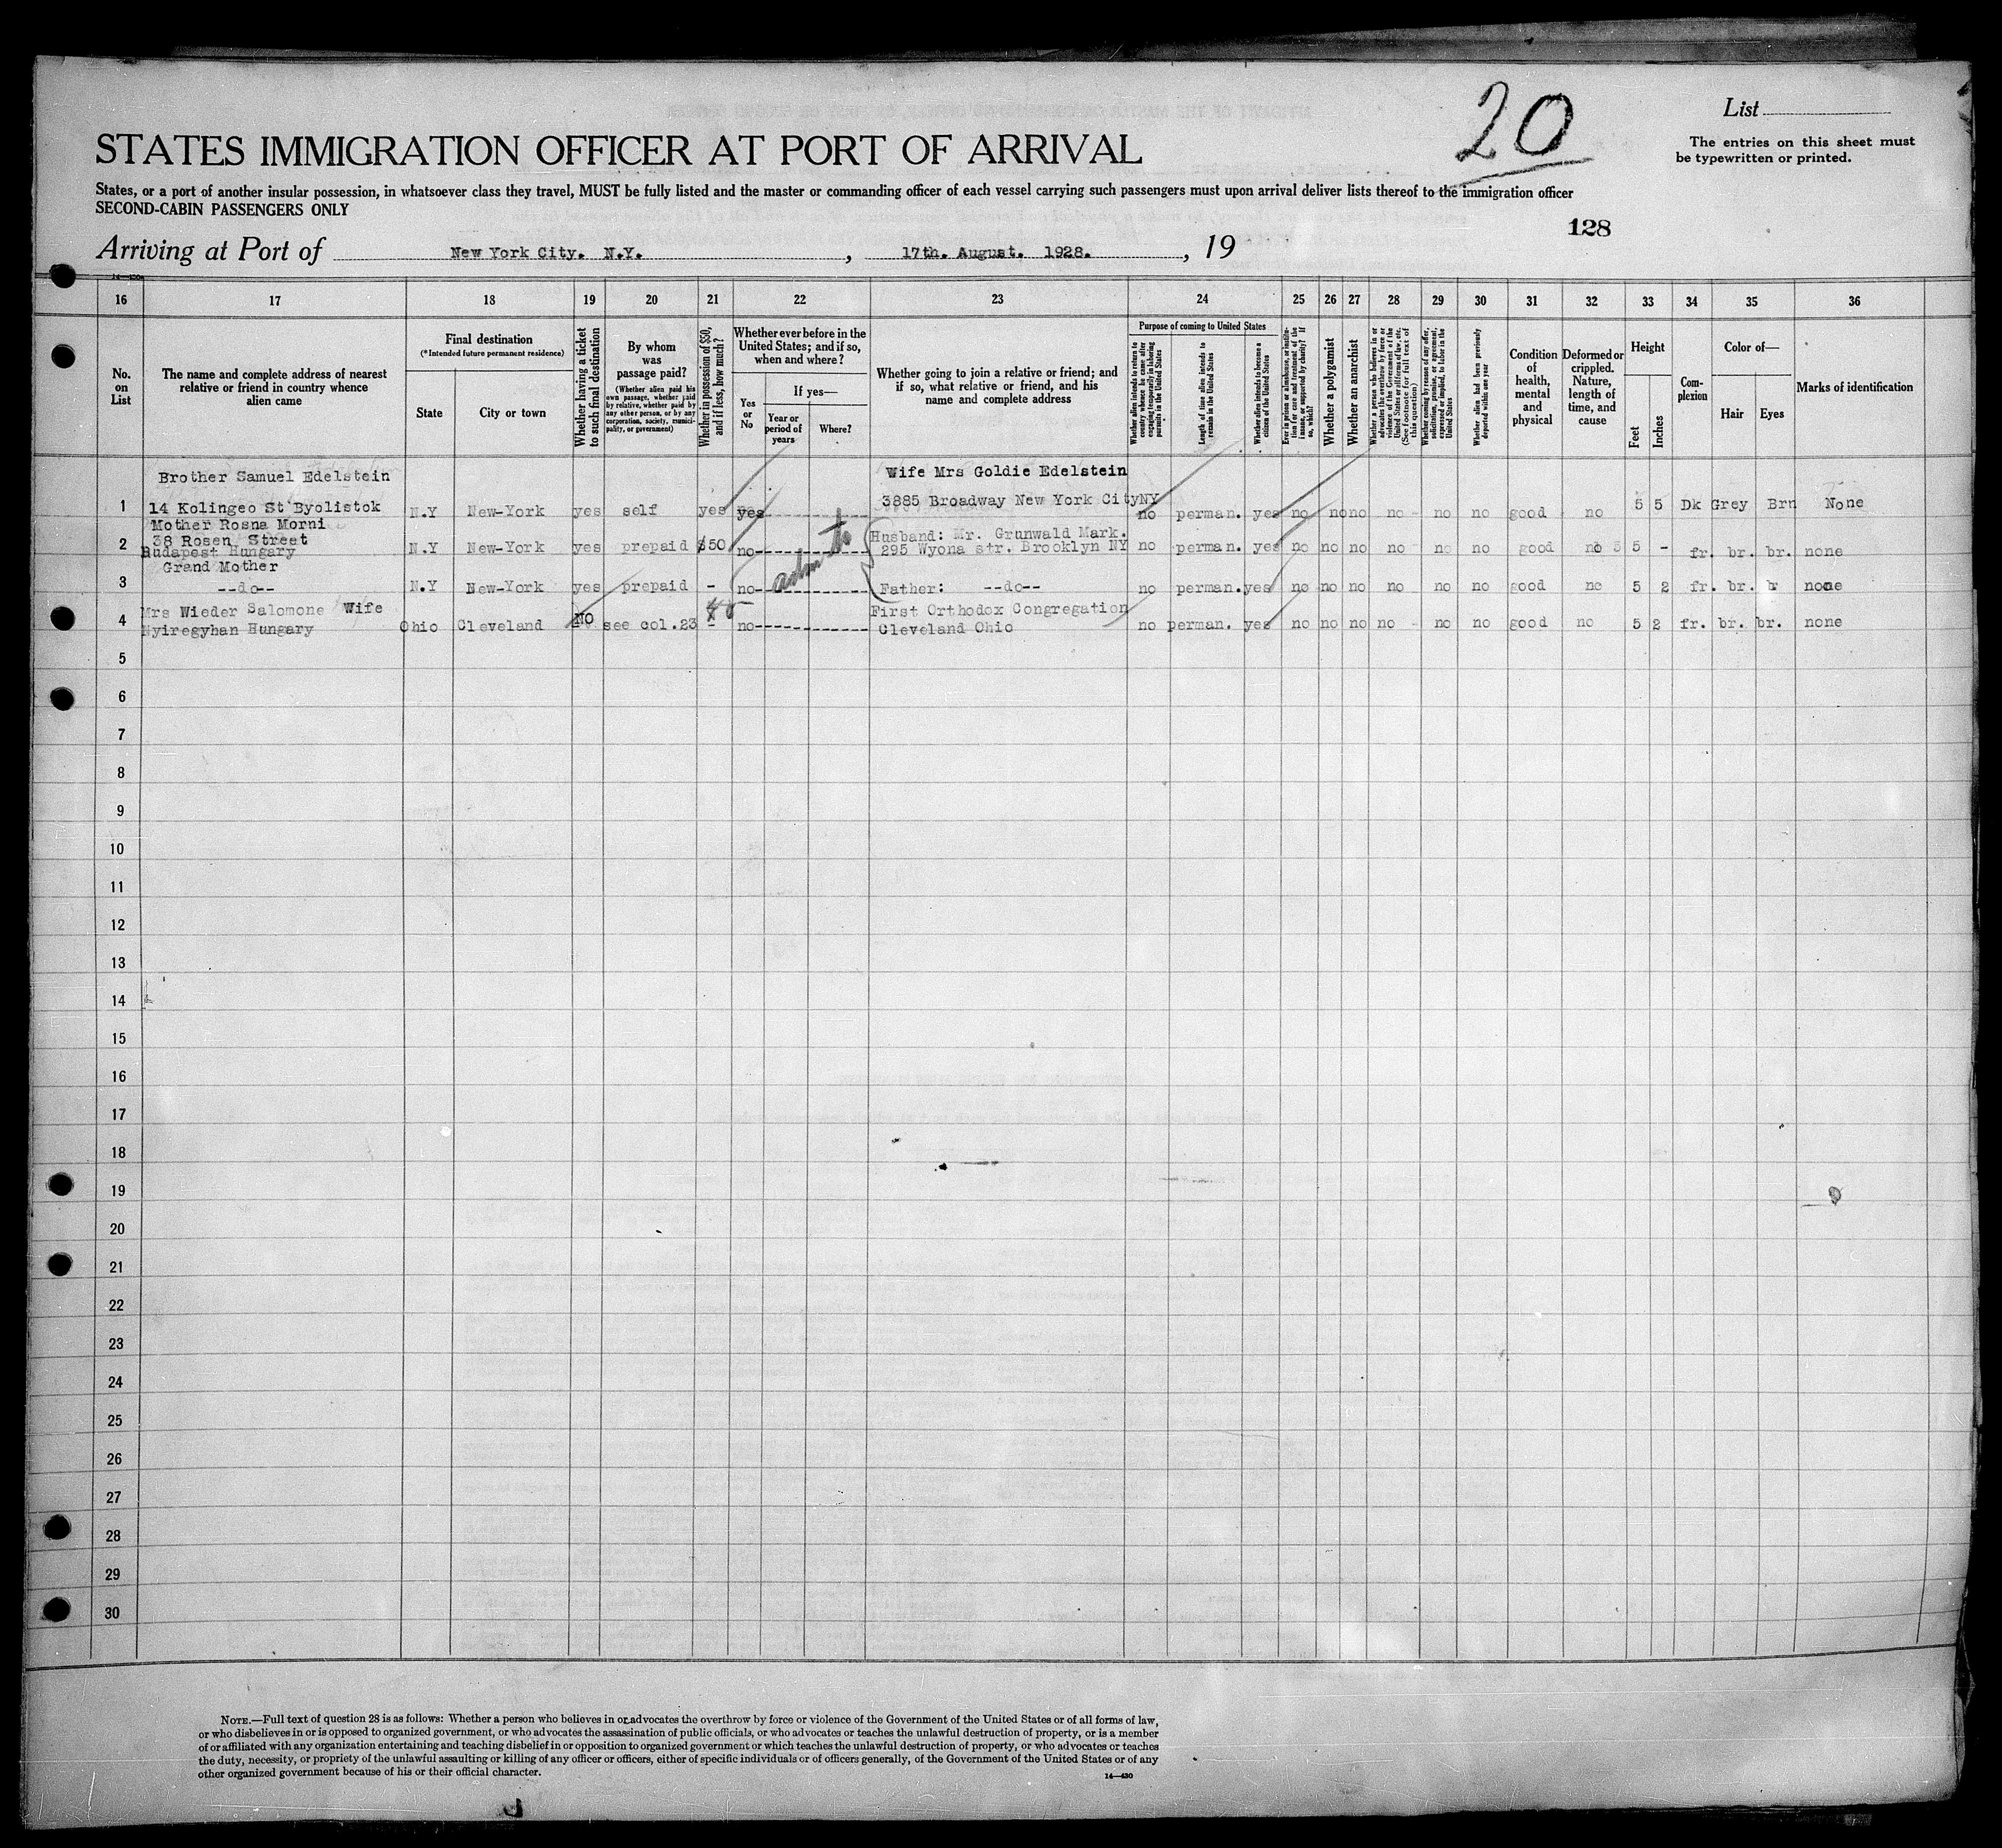 20
List
The entries on this sheet must
be typewritten or printed.
STATES IMMIGRATION OFFICER AT PORT OF ARRIVAL
States, or a port of another insular possession, in whatsoever class they travel, MUST be fully listed and the master or commanding officer of each vessel carrying such passengers must upon arrival deliver lists thereof to the immigration officer
SECOND-CABIN PASSENGERS ONLY
128
Arriving at Port of New York City. N.Y. , 17th. August. 1928. , 19
14-430
16 17 18 19 20 21 22 23 24 25 26 27 28 29 30 31 32 33 34 35 36
No. on List
The name and complete address of nearest relative or friend in country whence alien came
Final destination
(*Intended future permanent residence)
State
City or town
Whether having a ticket to such final destination
By whom was passage paid?
(Whether alien paid his own passage, whether paid by relative, whether paid by any other person, or by any corporation, society, municipality, or government)
Whether in possession of $50, and if less, how much?
Whether ever before in the United States; and if so, when and where?
Yes or No
If yes—
Year or period of years
Where?
Whether going to join a relative or friend; and if so, what relative or friend, and his name and complete address
Purpose of coming to United States
Whether alien intends to return to country whence he came after engaging temporarily in laboring pursuits in the United States
Length of time alien intends to remain in the United States
Whether alien intends to become a citizen of the United States
Ever in prison or almshouse, or institution for care and treatment of the insane, or supported by charity? If so, which?
Whether a polygamist
Whether an anarchist
Whether a person who believes in or advocates the overthrow by force or violence of the Government of the United States or all forms of law, etc. (See footnote for full text of this question)
Whether coming by reason of any offer, solicitation, promise, or agreement, expressed or implied, to labor in the United States
Whether alien had been previously deported within one year
Condition of health, mental and physical
Deformed or crippled. Nature, length of time, and cause
Height
Feet
Inches
Complexion
Color of—
Hair
Eyes
Marks of identification
Brother Samuel Edelstein Wife Mrs Goldie Edelstein
1 14 Kolingeo St Byolistok N.Y New-York yes self yes yes 3885 Broadway New York City NY no perman. yes no no no no no no good no 5 5 Dk Grey Brn None
Mother Rosna Morni
2 38 Rosen Street Husband: Mr. Grunwald Mark.
Budapest Hungary N.Y New-York yes prepaid $50 no 295 Wyona str. Brooklyn NY no perman. yes no no no no no no good no 5 - fr. br. br. none
admit to
Grand Mother
3 --do-- N.Y New-York yes prepaid - no Father: --do-- no perman. yes no no no no no no good no 5 2 fr. br. br none
4 Mrs Wieder Salomone Wife First Orthodox Congregation
Nyiregyhan Hungary Ohio Cleveland No see col.23 - no Cleveland Ohio no perman. yes no no no no no no good no 5 2 fr. br. br. none
5
6
7
8
9
10
11
12
13
14
15
16
17
18
19
20
21
22
23
24
25
26
27
28
29
30
NOTE.—Full text of question 28 is as follows: Whether a person who believes in or advocates the overthrow by force or violence of the Government of the United States or of all forms of law,
or who disbelieves in or is opposed to organized government, or who advocates the assassination of public officials, or who advocates or teaches the unlawful destruction of property, or is a member
of or affiliated with any organization entertaining and teaching disbelief in or opposition to organized government or which teaches the unlawful destruction of property, or who advocates or teaches
the duty, necessity, or propriety of the unlawful assaulting or killing of any officer or officers, either of specific individuals or of officers generally, of the Government of the United States or of any
other organized government because of his or their official character.
14-430